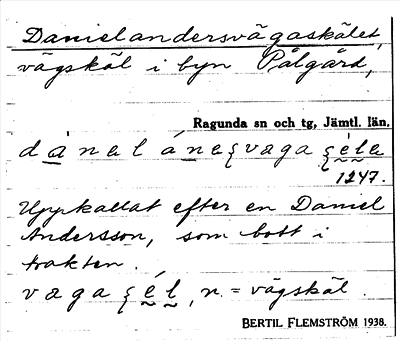 Danielandersvägaskälet,
vägskäl i byn Pålgård,
Ragunda sn och tg, Jämtl. län.
1247.
Uppkallat efter en Daniel
Andersson, som bott i
trakten.
n. = vägskäl.
BERTIL FLEMSTRÖM 1938.